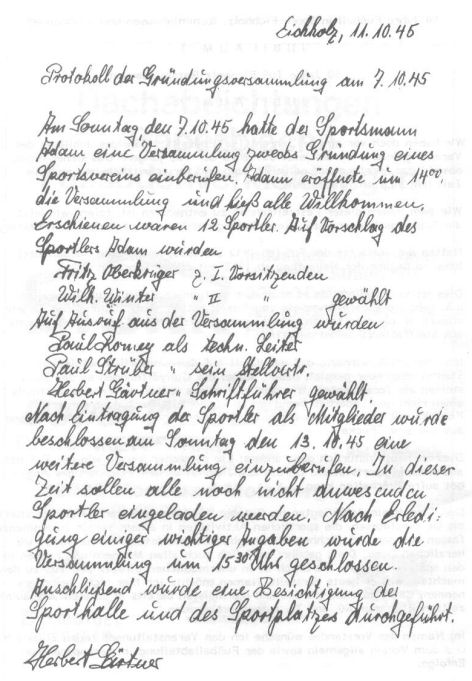 Eichholz, 11.10.45
Protokoll der Gründungsversammlung am 7.10.45
Am Sonntag, den 7.10.45 hatte der Sportsmann
Adam eine Versammlung zwecks Gründung eines
Sportvereins einberufen. Adam eröffnete um 14⁰⁰,
die Versammlung und hieß alle Willkommen.
Erschienen waren 12 Sportler. Auf Vorschlag des
Sportlers Adam wurden
Fritz Oberkrüger z. I. Vorsitzenden
Wilh. Winter " II " gewählt
Auf Ausruf aus der Versammlung wurden
Paul Romey als techn. Leiter
Paul Strüber " sein Stellvertr.
Herbert Gärtner " Schriftführer gewählt.
Nach Eintragung der Sportler als Mitglieder wurde
beschlossen am Sonntag den 13.10.45 eine
weitere Versammlung einzuberufen. In dieser
Zeit sollen alle noch nicht anwesenden
Sportler eingeladen werden. Nach Erledi-
gung einiger wichtiger Angaben wurde die
Versammlung um 15³⁰ Uhr geschlossen.
Anschließend wurde eine Besichtigung der
Sporthalle und des Sportplatzes durchgeführt.
Herbert Gärtner